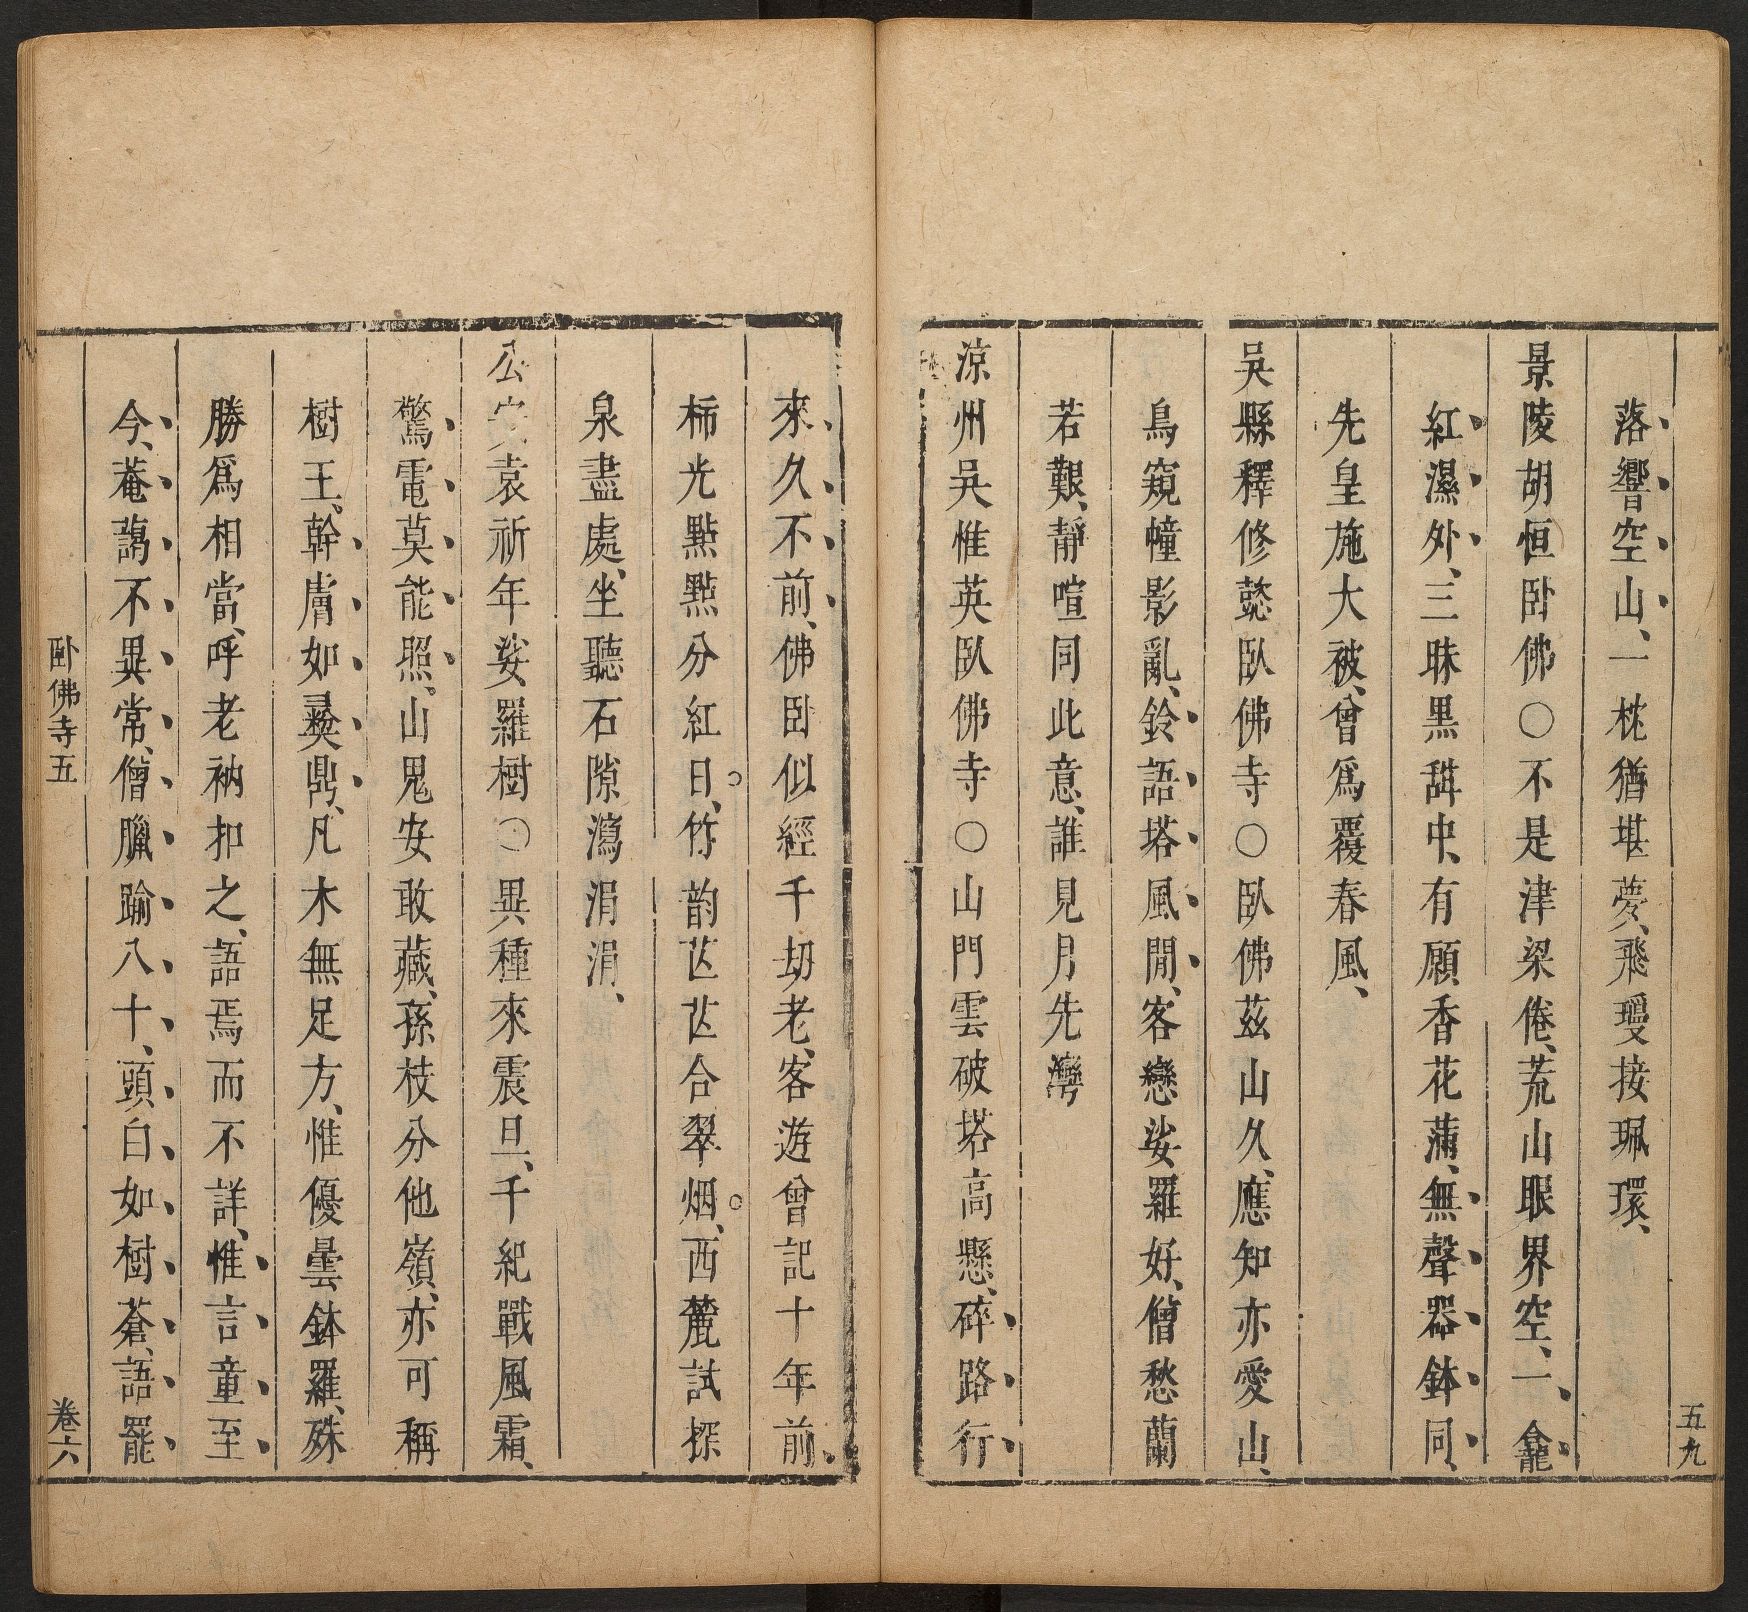 五九
落響空山、一枕猶堪夢、飛璎接珮環、
景陵胡恒卧佛○不是津梁倦、荒山眼界空、一龕
紅濕外、三昧黒甜中、有願香花蒲、無聲器鉢同、
先皇施大被、曾爲覆春風、
吳縣釋修懿臥佛寺○臥佛茲山久、應知亦愛山、
鳥窺幢影亂、鈴語塔風閒、客戀娑羅好、僧愁蘭
若艱、靜喧同此意、誰見月先灣
涼州吳惟英臥佛寺○山門雲破塔高懸、碎路行
來久不前、佛臥似經千劫老、客遊曾記十年前、
柿光點點分紅日、竹韵苾苾合翠烟、西麓試探
泉盡處、坐聽石隙瀉涓涓、
公安袁祈年娑羅樹○異種來震旦、千紀戰風霜、
驚電莫能照。山鬼安敢藏、孫枝分他嶺、亦可稱
樹王、幹膚如彝鼎、凡木無足方、惟優曇鉢羅、殊
勝爲相當、呼老衲扣之、語焉而不詳、惟言童至
今、菴藹不異常、僧臘踰八十、頭白如樹蒼、語罷
臥佛寺五
卷六